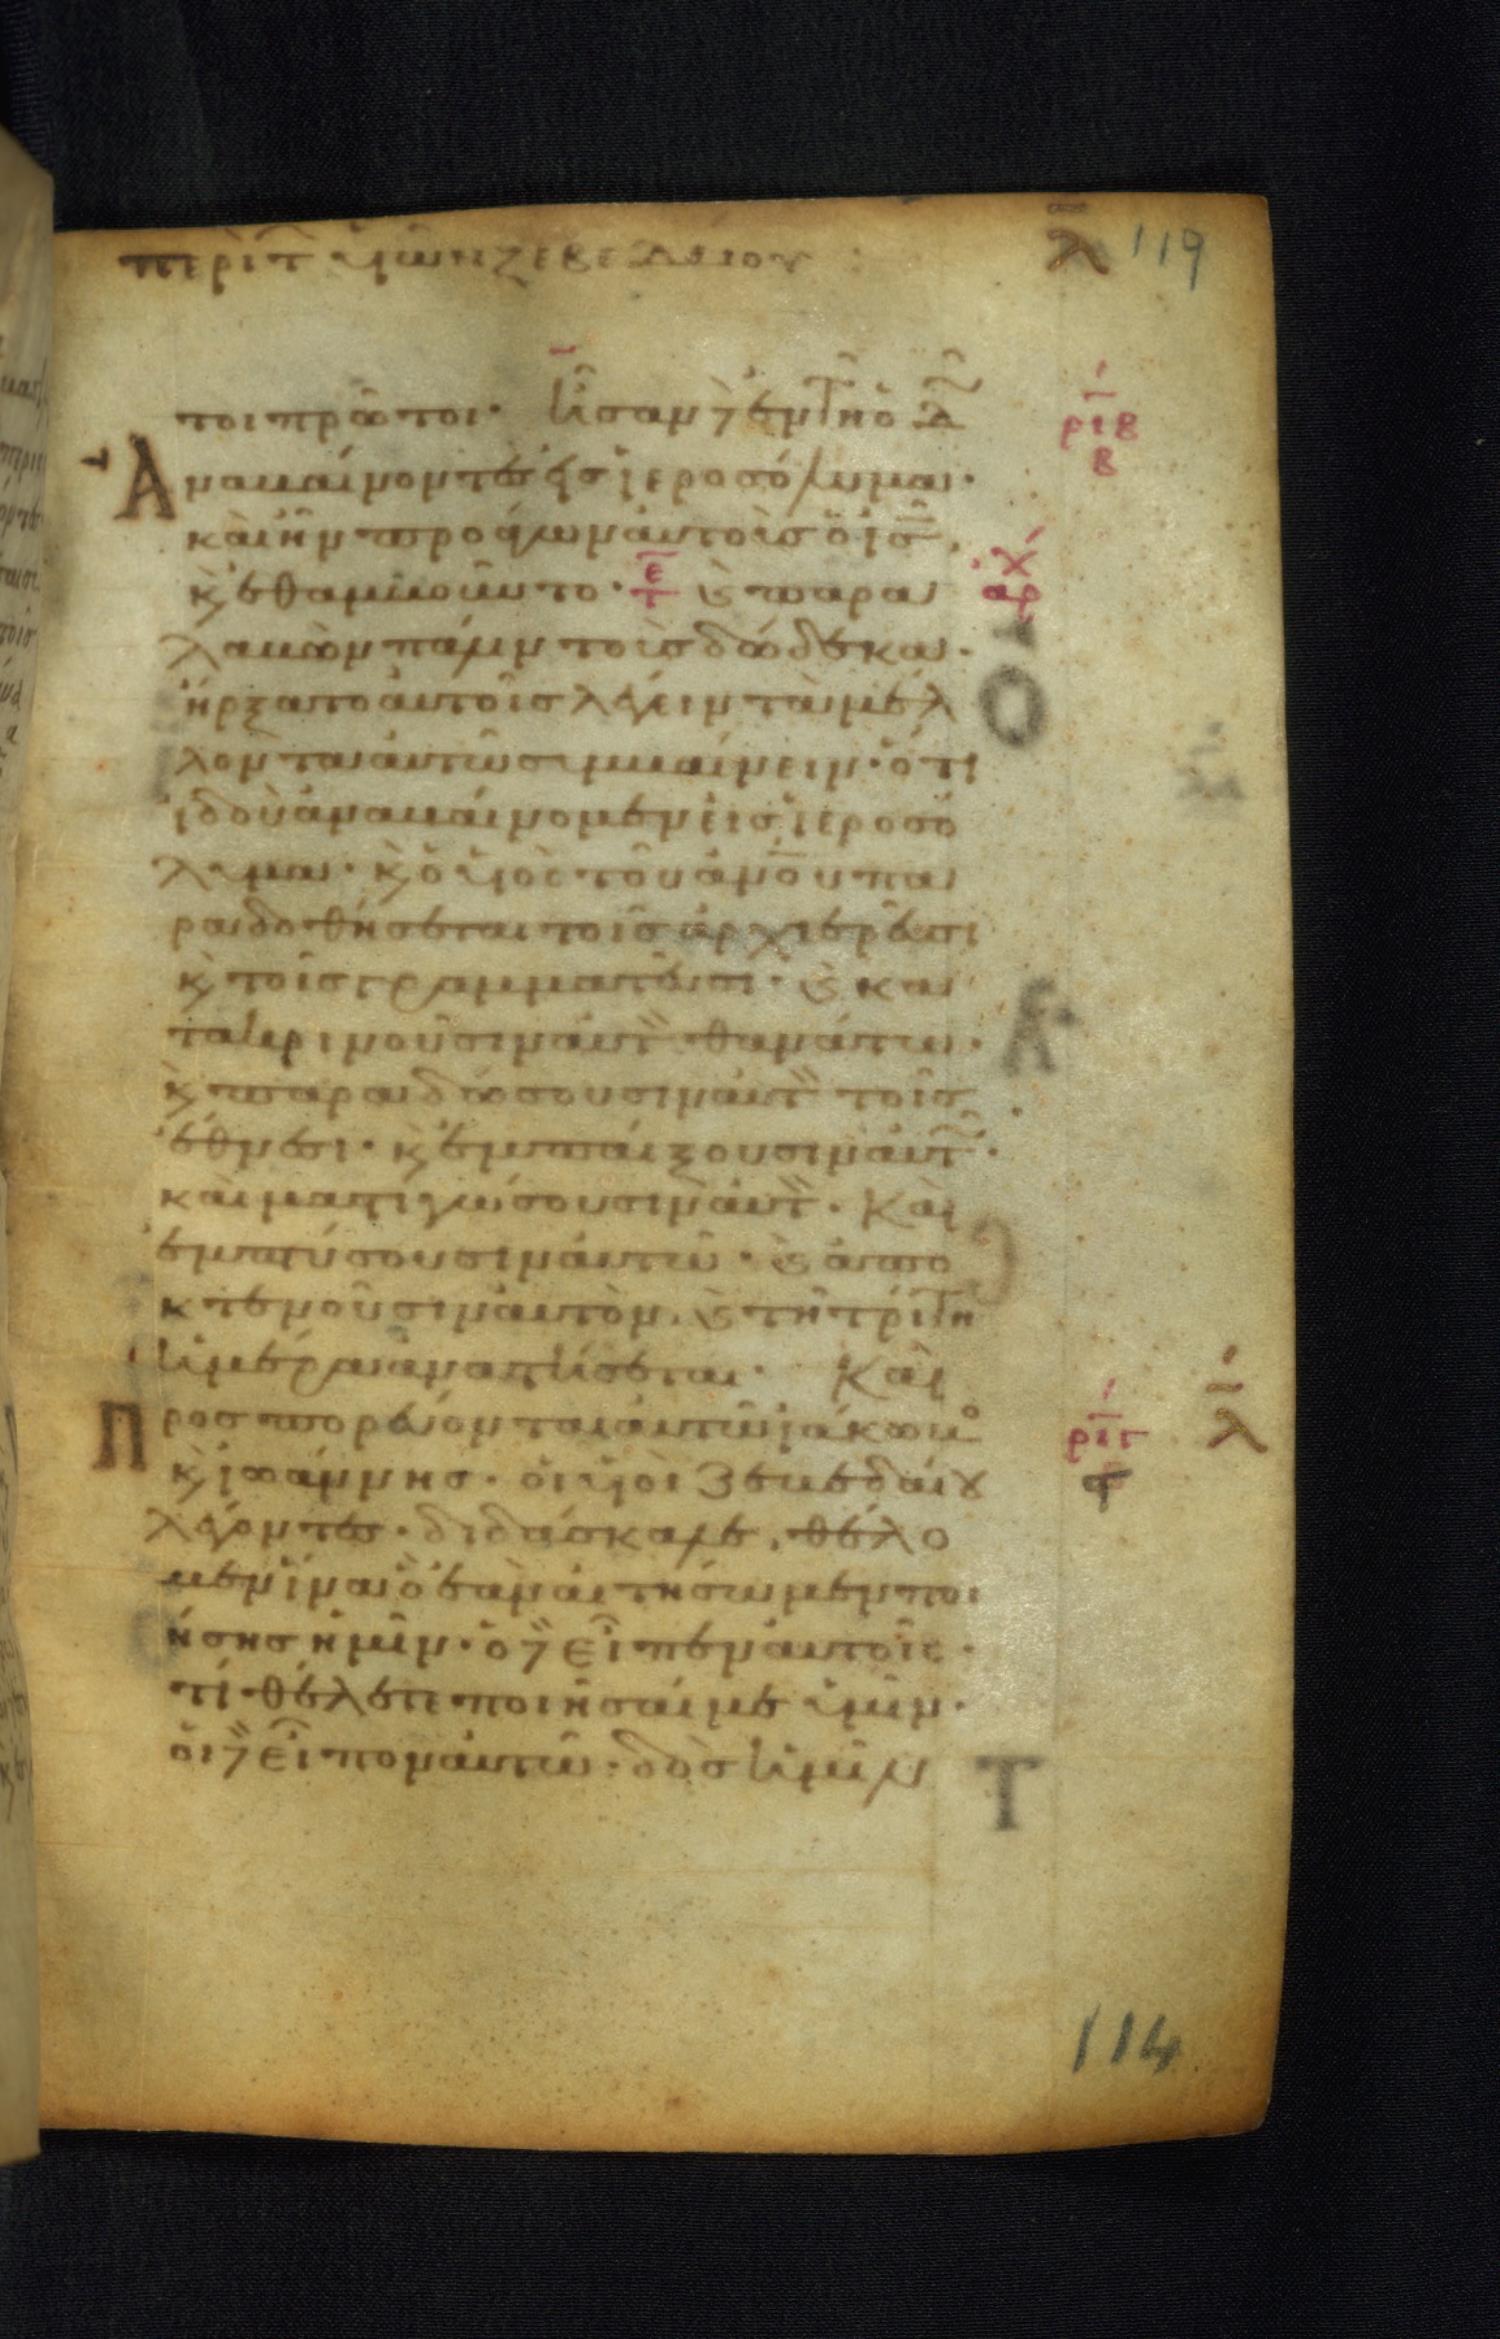 περὶ τ υἱῶν ζεβεδαίου λ 119
τοι πρῶτοι · ἦσαν δὲ ἐν τῆ ὁδῶ ριβ
β
Ἀναβαίνοντες εἰς ἱεροσόλυμα ·
καὶ ἦν προάγων αὐτοὺς ὁ ἰς
κ ἐθαμβοῦντο · κ παρα αρχ
λαβὼν πάλιν τοὺς δώδεκα ·
ἤρξατο αὐτοῖς λέγειν τὰ μελ
λοντα αὐτῶ συμβαίνειν · ὅτι
ἰδοὺ ἀναβαίνομεν εἰς ἱεροσό
λυμα · κ ὁ υἱὸς τοῦ ἀνου πα
ραδοθήσεται τοῖς ἀρχιερεῦσι
κ τοῖς γραμματεῦσι · κ κα
τακρινοῦσιν αὐτ θανάτω ·
κ παραδώσουσιν αὐτ τοῖς
ἔθνεσι · κ ἐμπαίξουσιν αὐτ ·
καὶ μαστιγώσουσιν αὐτ · Καὶ
ἐμπτύσουσιν αὐτῶ · κ ἀπο
κτενοῦσιν αὐτὸν · κ τῆ τρίτη
ἡμέρα ἀναστήσεται · Καὶ
Προσπορεύονται αὐτῶ ἰάκωβο ριγ λ
κ ἰωάννης · οἱ υἱοὶ ζεβεδαίου
λέγοντες · διδάσκαλε, θέλο
μεν ἵνα ὃ ἐὰν αἰτήσωμεν ποι
ήσης ἡμῖν · ὁ δὲ εἶπεν αὐτοῖς ·
τί θέλετε ποιῆσαί με ὑμῖν ·
οἱ δὲ εἶπον αὐτῶ · δὸς ἡμῖν
114